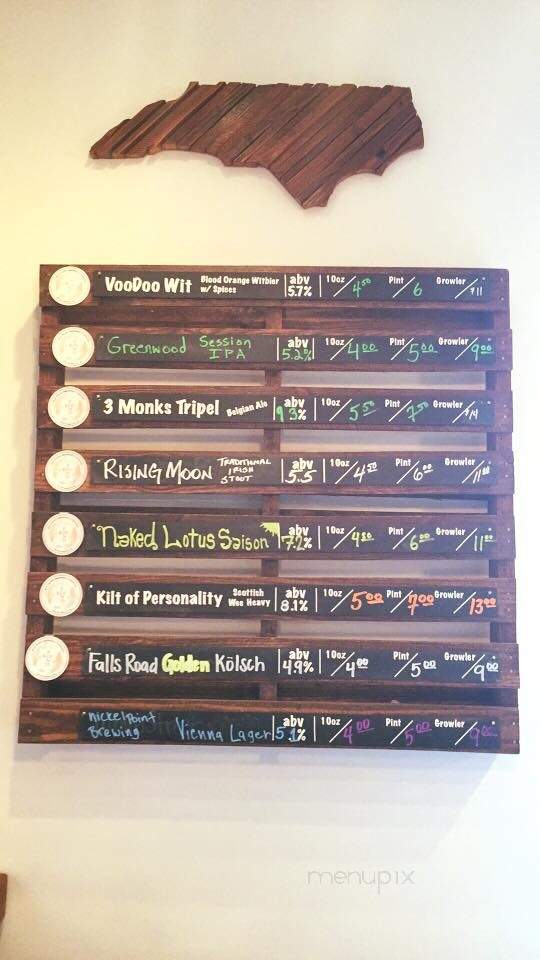 VooDoo Wit Blood Orange Witbier w/ Spices abv 5.7% 10oz 4.50 Pint 6 Growler $11
Greenwood Session IPA abv 5.2% 10oz 4.00 Pint 5.00 Growler 9.00
3 Monks Tripel Belgian Ale abv 9.3% 10oz 5.50 Pint 7.50 Growler $14
Rising Moon Traditional Irish Stout abv 5.5 10oz 4.50 Pint 6.00 Growler 11.00
Naked Lotus Saison abv 7.2% 10oz 4.50 Pint 6.00 Growler 11.00
Kilt of Personality Scottish Wee Heavy abv 8.1% 10oz 5.00 Pint 7.00 Growler 13.00
Falls Road Golden Kölsch abv 4.9% 10oz 4.00 Pint 5.00 Growler 9.00
nickelpoint Brewing Vienna Lager abv 5.1% 10oz 4.00 Pint 5.00 Growler 9.00
menupix